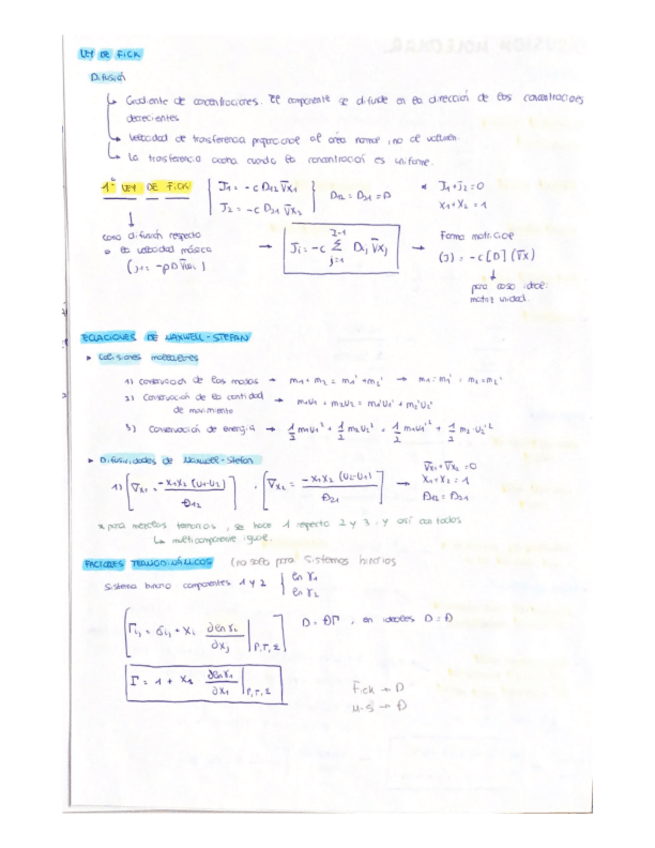 LEY DE FICK
Difusión
↳ Gradiente de concentraciones. El componente se difunde en la dirección de las concentraciones
decrecientes
↳ Velocidad de transferencia proporcional al área normal, no al volumen.
↳ La transferencia cuando la concentración es uniforme.
1ª LEY DE FICK { J₁ = -c D₁₂ ∇x₁ } D₁₂ = D₂₁ = D * J₁+J₂=0
J₂ = -c D₂₁ ∇x₂ x₁+x₂ = 1
como difusión respecto
a la velocidad másica
(j₁ = -ρD∇ω₁)
→ Jᵢ = -c Σ Dᵢⱼ ∇xⱼ →
j=1
Forma matricial
(J) = -c [D] (∇x)
para caso ideal:
matriz unidad.
ECUACIONES DE MAXWELL-STEFAN
▸ Colisiones moleculares
1) conservación de las masas → m₁ + m₂ = m₁' + m₂' → m₁ = m₁' , m₂ = m₂'
2) Conservación de la cantidad
de movimiento → m₁u₁ + m₂u₂ = m₁'u₁' + m₂'u₂'
3) Conservación de energía → 1/2 m₁u₁² + 1/2 m₂u₂² = 1/2 m₁u₁'² + 1/2 m₂·u₂'²
▸ Difusividades de Maxwell-Stefan
1) [ ∇x₁ = -x₁x₂ (u₁-u₂) / Đ₁₂ ] , [ ∇x₂ = -x₁x₂ (u₂-u₁) / Đ₂₁ ] →
∇x₁+∇x₂ =0
x₁+x₂ = 1
Đ₁₂ = Đ₂₁
* para mezclas ternarias, se hace 1 respecto 2 y 3, y así con todos
↳ multicomponente igual.
FACTORES TERMODINÁMICOS (no solo para sistemas binarios
Sistema binario componentes 1 y 2 { ln γ₁
ln γ₂
[ Γᵢⱼ = δᵢⱼ + xᵢ ∂ln γᵢ / ∂xⱼ |P,T,Σ ] D = ĐΓ , en ideales D = Đ
Γ = 1 + x₁ ∂ln γ₁ / ∂x₁ |P,T,Σ
Fick → D
M-S → Đ